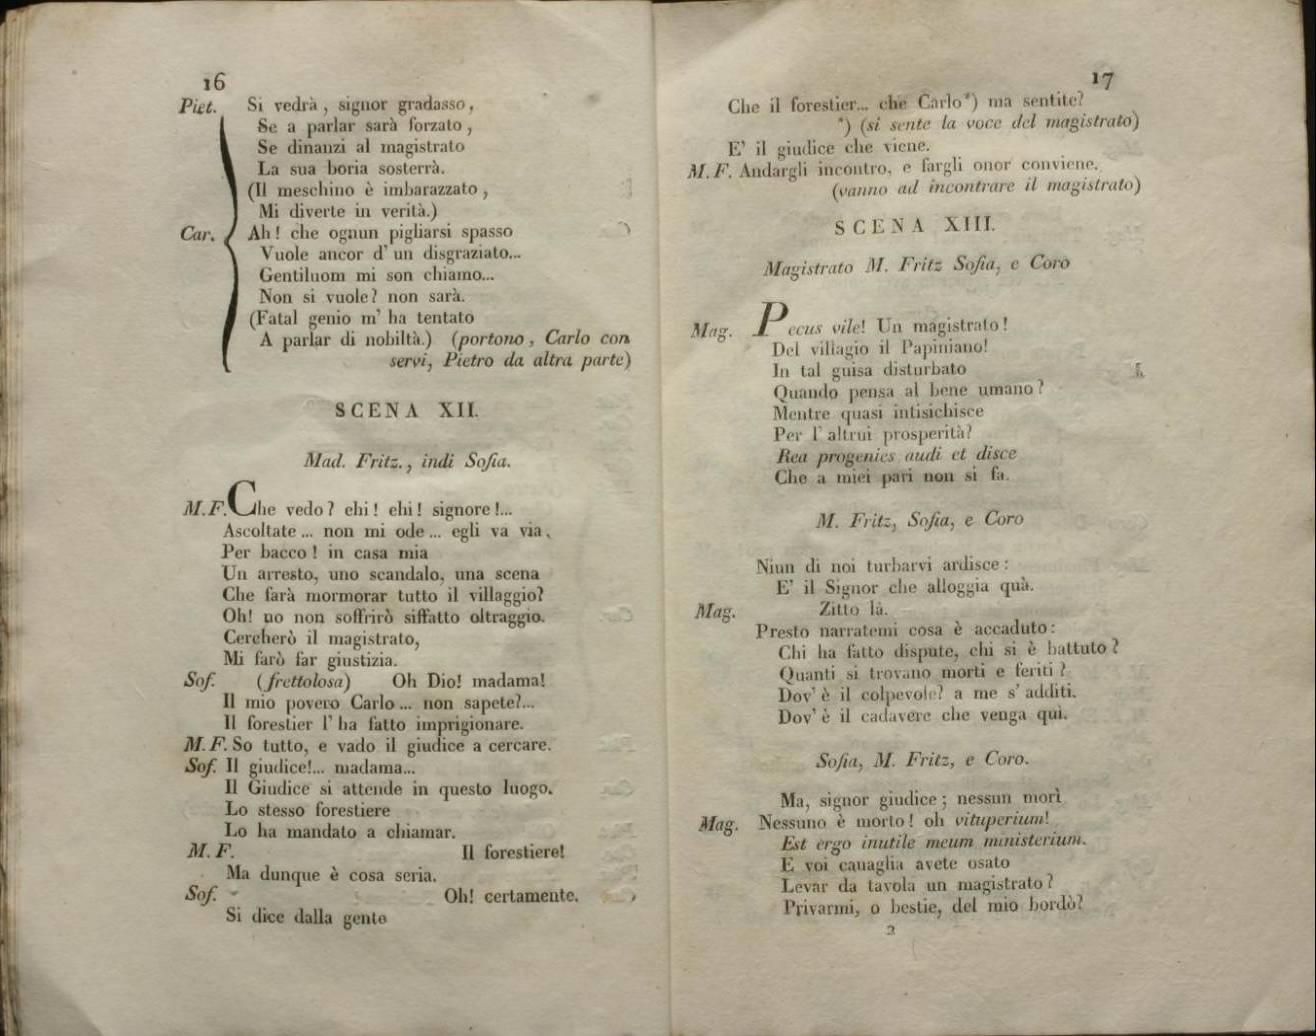 16
Piet. Si vedrà, signor gradasso,
Se a parlar sarà forzato,
Se dinanzi al magistrato
La sua boria sosterrà.
(Il meschino è imbarazzato,
Mi diverte in verità.)
Car. Ah! che ognun pigliarsi spasso
Vuole ancor d' un disgraziato...
Gentiluom mi son chiamo...
Non si vuole? non sarà.
(Fatal genio m' ha tentato
A parlar di nobiltà.) (portono, Carlo con
servi, Pietro da altra parte)
SCENA XII.
Mad. Fritz., indi Sofia.
M.F. Che vedo? ehi! ehi! signore!...
Ascoltate... non mi ode... egli va via.
Per bacco! in casa mia
Un arresto, uno scandalo, una scena
Che farà mormorar tutto il villaggio?
Oh! no non soffrirò siffatto oltraggio.
Cercherò il magistrato,
Mi farò far giustizia.
Sof. (frettolosa) Oh Dio! madama!
Il mio povero Carlo... non sapete?...
Il forestier l' ha fatto imprigionare.
M. F. So tutto, e vado il giudice a cercare.
Sof. Il giudice!... madama...
Il Giudice si attende in questo luogo.
Lo stesso forestiere
Lo ha mandato a chiamar.
M. F. Il forestiere!
Ma dunque è cosa seria.
Sof. Oh! certamente.
Si dice dalla gente
17
Che il forestier... che Carlo*) ma sentite?
*) (si sente la voce del magistrato)
E' il giudice che viene.
M. F. Andargli incontro, e fargli onor conviene.
(vanno ad incontrare il magistrato)
SCENA XIII.
Magistrato M. Fritz Sofia, e Coro
Mag. Pecus vile! Un magistrato!
Del villagio il Papiniano!
In tal guisa disturbato
Quando pensa al bene umano?
Mentre quasi intisichisce
Per l' altrui prosperità?
Rea progenies audi et disce
Che a miei pari non si fa.
M. Fritz, Sofia, e Coro
Niun di noi turbarvi ardisce:
E' il Signor che alloggia quà.
Mag. Zitto là.
Presto narratemi cosa è accaduto:
Chi ha fatto dispute, chi si è battuto?
Quanti si trovano morti e feriti?
Dov' è il colpevole? a me s' additi.
Dov' è il cadavere che venga quì.
Sofia, M. Fritz, e Coro.
Ma, signor giudice; nessun morì
Mag. Nessuno è morto! oh vituperium!
Est ergo inutile meum ministerium.
E voi canaglia avete osato
Levar da tavola un magistrato?
Privarmi, o bestie, del mio bordò?
2